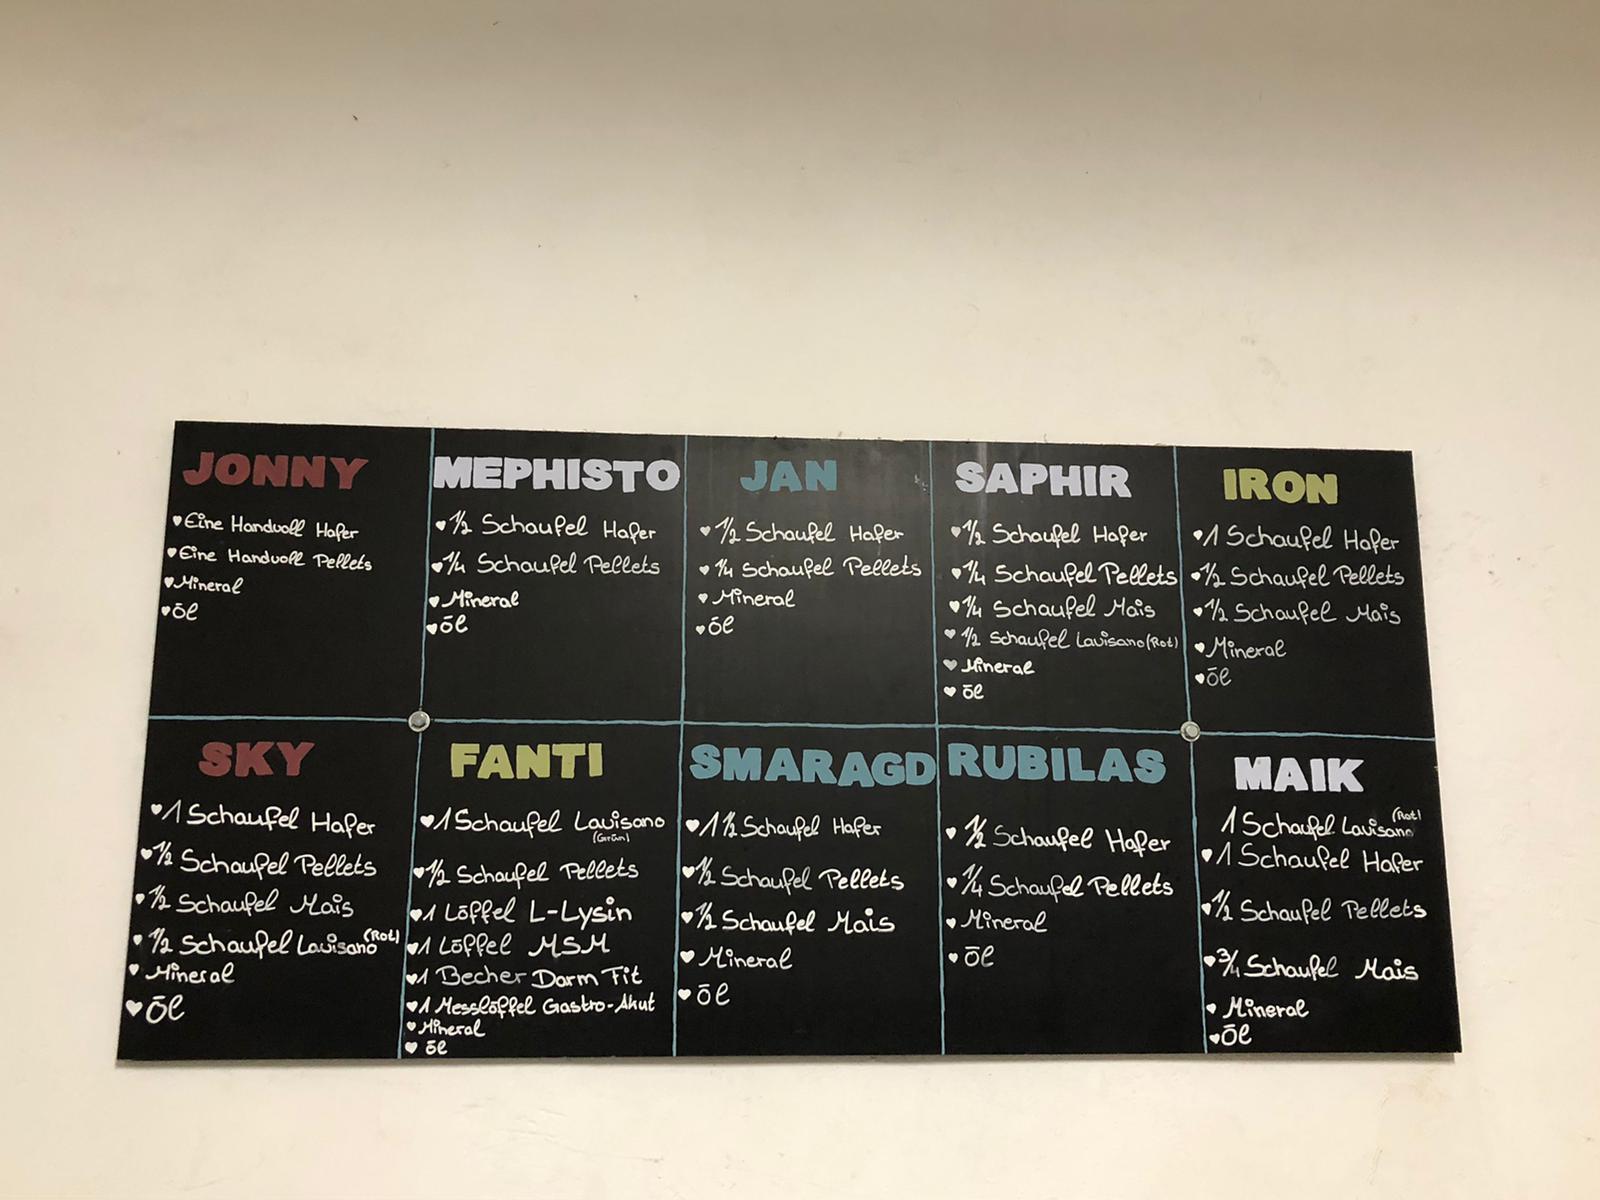 JONNY
♥Eine Handvoll Hafer
♥Eine Handvoll Pellets
♥Mineral
♥Öl
MEPHISTO
♥1/2 Schaufel Hafer
♥1/4 Schaufel Pellets
♥Mineral
♥Öl
JAN
♥1/2 Schaufel Hafer
♥1/4 Schaufel Pellets
♥Mineral
♥Öl
SAPHIR
♥1/2 Schaufel Hafer
♥1/4 Schaufel Pellets
♥1/4 Schaufel Mais
♥1/2 Schaufel Lavisano (Rot)
♥Mineral
♥Öl
IRON
♥1 Schaufel Hafer
♥1/2 Schaufel Pellets
♥1/2 Schaufel Mais
♥Mineral
♥Öl
SKY
♥1 Schaufel Hafer
♥1/2 Schaufel Pellets
♥1/2 Schaufel Mais
♥1/2 Schaufel Lavisano (Rot)
♥Mineral
♥Öl
FANTI
♥1 Schaufel Lavisano
(Grün)
♥1/2 Schaufel Pellets
♥1 Löffel L-Lysin
♥1 Löffel MSM
♥1 Becher Darm Fit
♥1 Messlöffel Gastro-Akut
♥Mineral
♥Öl
SMARAGD
♥1 1/2 Schaufel Hafer
♥1/2 Schaufel Pellets
♥1/2 Schaufel Mais
♥Mineral
♥Öl
RUBILAS
♥1/2 Schaufel Hafer
♥1/4 Schaufel Pellets
♥Mineral
♥Öl
MAIK
1 Schaufel Lavisano (Rot)
♥1 Schaufel Hafer
♥1/2 Schaufel Pellets
♥3/4 Schaufel Mais
♥Mineral
♥Öl